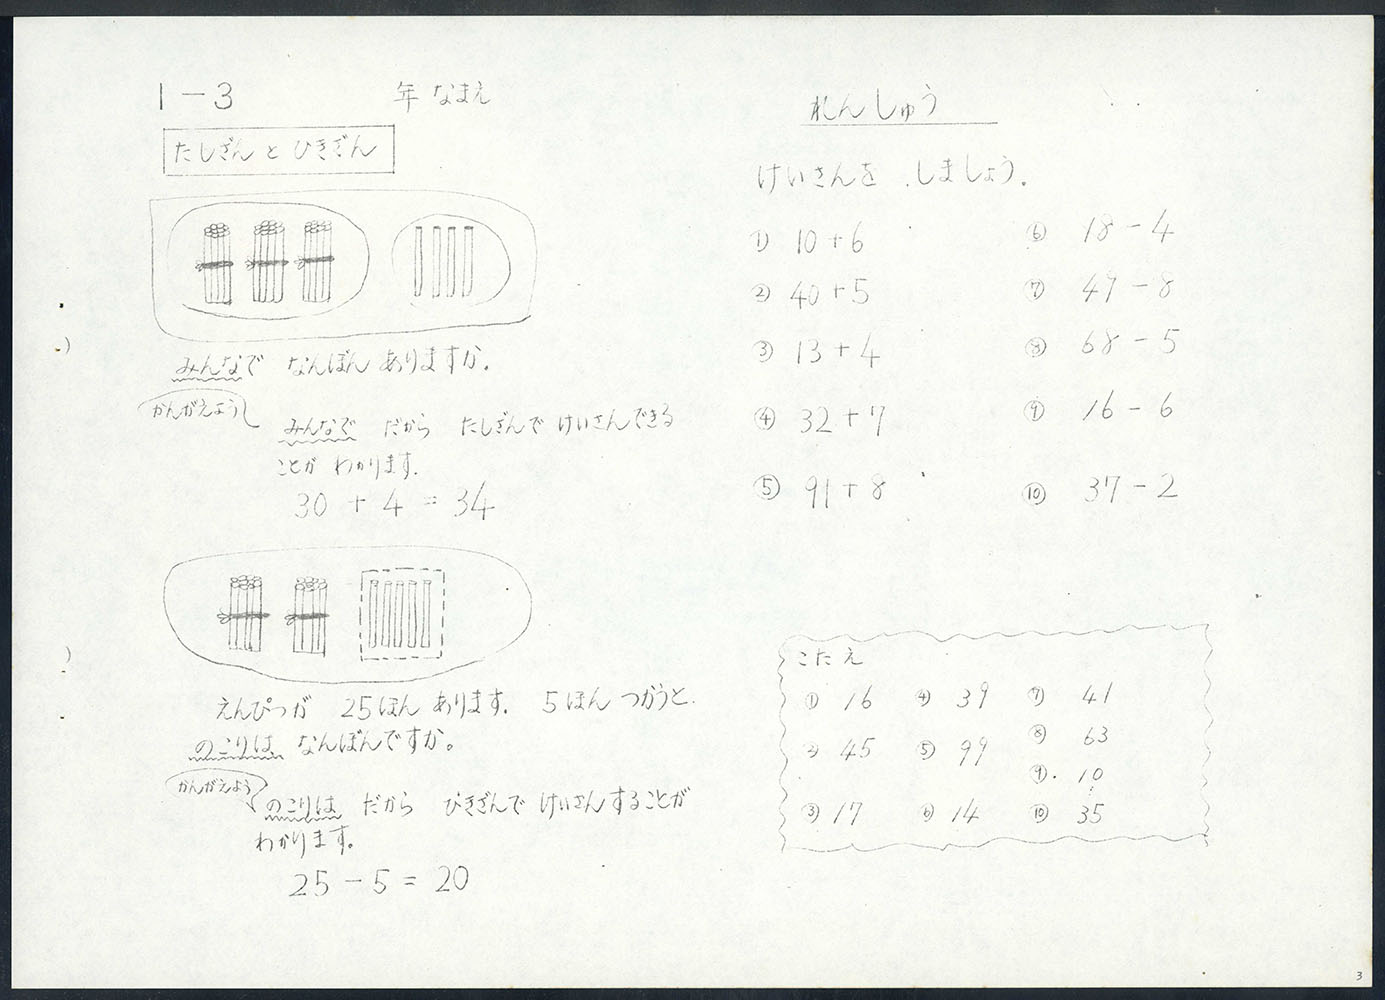 1-3 年 なまえ
たしざん と ひきざん
みんなで なんぼん ありますか。
かんがえよう
みんなで だから たしざんで けいさんできる
ことが わかります.
30 + 4 = 34
えんぴつが 25ほん あります. 5ほん つかうと.
のこりは なんぼんですか。
かんがえよう
のこりは だから ひきざんで けいさんすることが
わかります。
25 - 5 = 20
れんしゅう
けいさんを しましょう.
① 10+6
② 40+5
③ 13+4
④ 32+7
⑤ 91+8
⑥ 18-4
⑦ 49-8
⑧ 68-5
⑨ 16-6
⑩ 37-2
こたえ
① 16 ④ 39 ⑦ 41
② 45 ⑤ 99 ⑧ 63
⑨. 10
③ 17 ⑥ 14 ⑩ 35
3